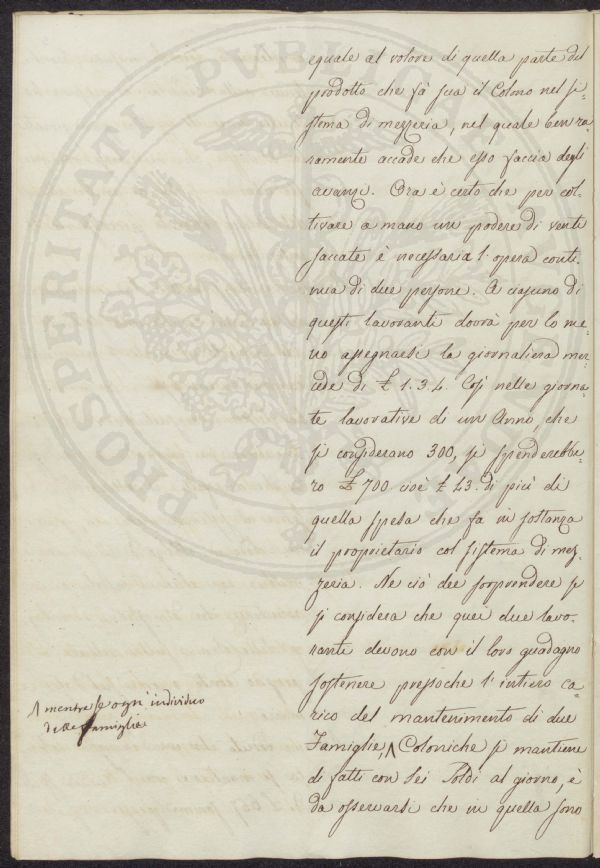 equale al valore di quella parte del
prodotto che fà sua il Colono nel si=
stema di mezzeria, nel quale ben ra=
ramente accade che esso faccia degli
avanzi. Ora è certo che per col=
tivare a mano un podere di venti
saccate è necessaria l'opera conti=
nua di due persone. A ciascuno di
questi lavoranti dovrà per lo me=
no assegnarsi la giornaliera mer=
cede di £ 1.3.4. Così nelle giorna=
te lavorative di un Anno, che
si considerano 300, si spenderebbe=
ro £ 700 cioè £ 43. di più di
quella spesa che fa in sostanza
il proprietario col sistema di mez=
zeria. Ne ciò dee sorprendere se
si considera che quei due lavo=
ranti devono con il loro guadagno
sostenere pressoche l'intiero ca=
rico del mantenimento di due
Famiglie, Λ Coloniche si mantiene
di fatti con sei Soldi al giorno, è
da osservarsi che in quella sono
Λ mentre se ogn'individuo
delle famiglie
PROSPERITATI PUBLICAE